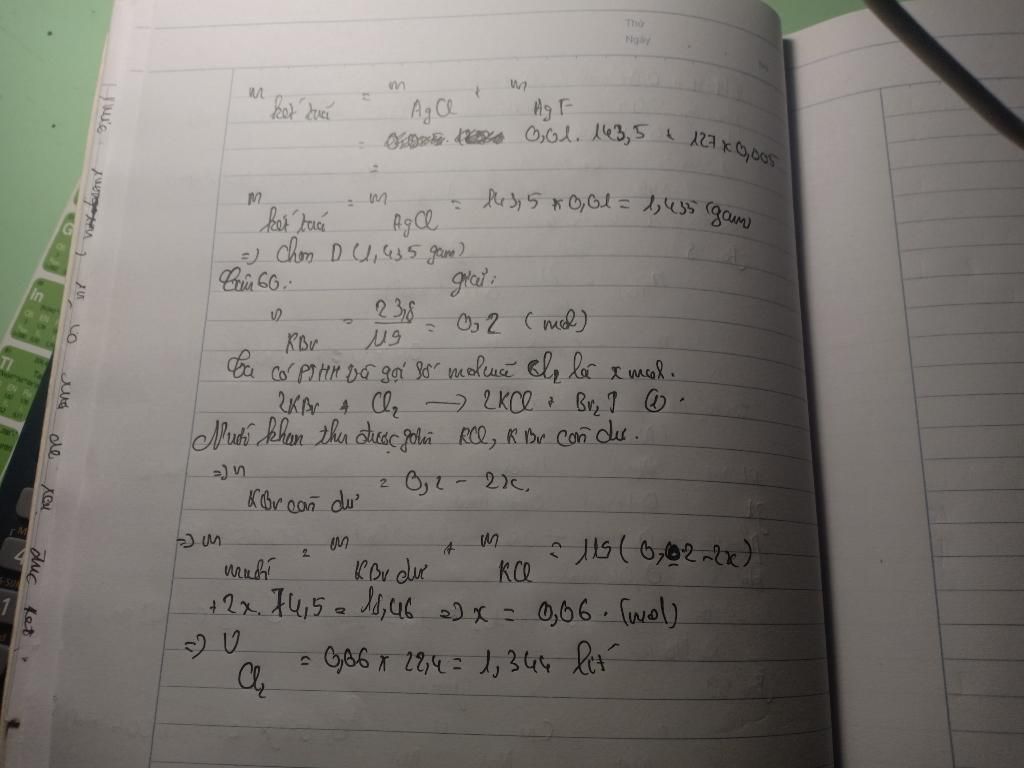 Thứ
Ngày
m kết tuả = m AgCl + m AgF
= 0,01. 143,5 + 127 x 0,005
=
m kết tuả = m AgCl = 143,5 x 0,01 = 1,435 (gam)
=> Chọn D (1,435 gam)
Câu 60: giải:
n KBr = 23,8/119 = 0,2 (mol)
Ta có PTHH gọi số mol Cl2 là x mol.
2KBr + Cl2 → 2KCl + Br2 (1).
Muối khan thu được gồm KCl, KBr còn dư.
=> n KBr còn dư = 0,2 - 2x.
=> m muối = m KBr dư + m KCl = 119( 0,2-2x)
+ 2x. 74,5 = 18,46 => x = 0,06. (mol)
=> V Cl2 = 0,06 x 22,4 = 1,344 lít